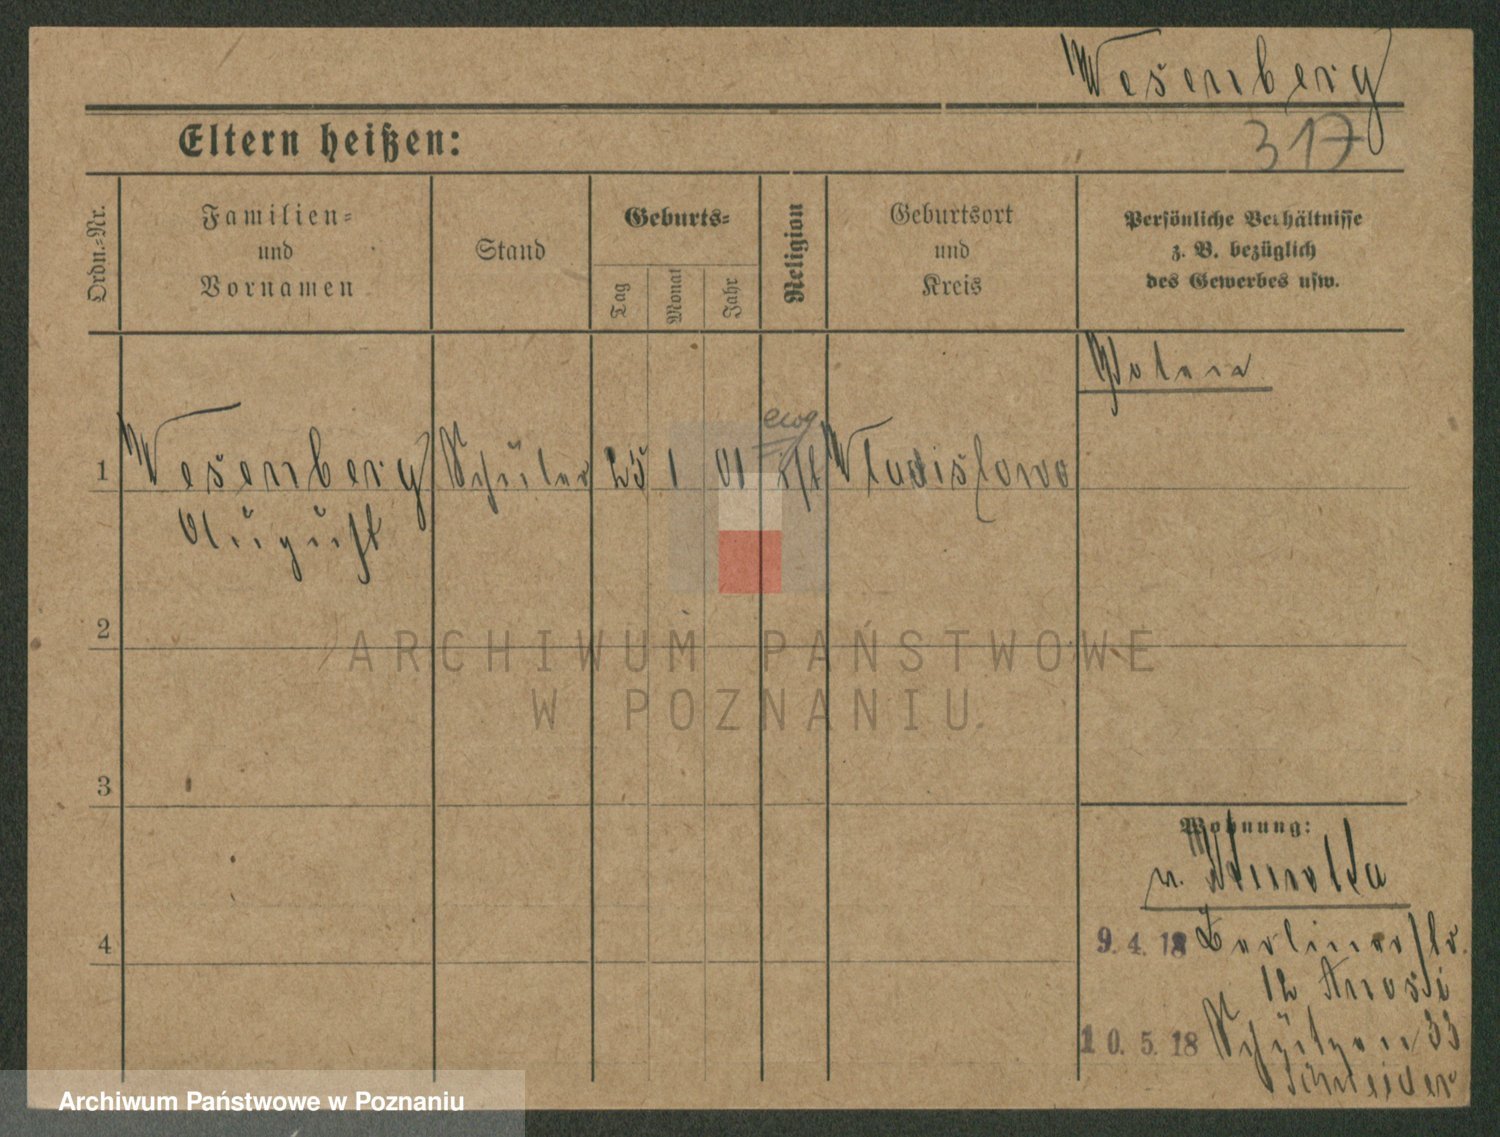 Wesenberg
317
Eltern heißen:
Ordn.-Nr.
Familien=
und
Vornamen
Stand
Geburts=
Tag
Monat
Jahr
Religion
Geburtsort
und
Kreis
Persönliche Verhältnisse
z. B. bezüglich
des Gewerbes usw.
Polen
ewg
1 Wesenberg Schüler 25 1 01 Wladislowo
August
2
3
4
Wohnung:
9.4.18 Berlinerstr.
12
10.5.18 Schützen 33
Schneider
ARCHIWUM PAŃSTWOWE
W POZNANIU
Archiwum Państwowe w Poznaniu